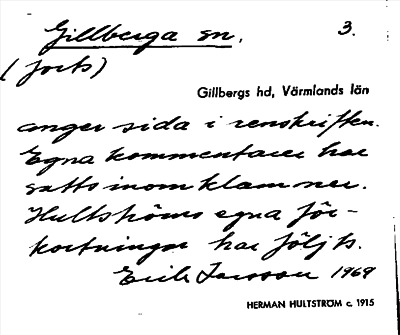 Gillberga sn. 3.
(forts)
Gillbergs hd, Värmlands län
anger sida i renskriften.
Egna kommentarer har
satts inom klamrar.
Hultströms egna för-
kortningar har följts.
Erik Larsson 1969
HERMAN HULTSTRÖM c. 1915